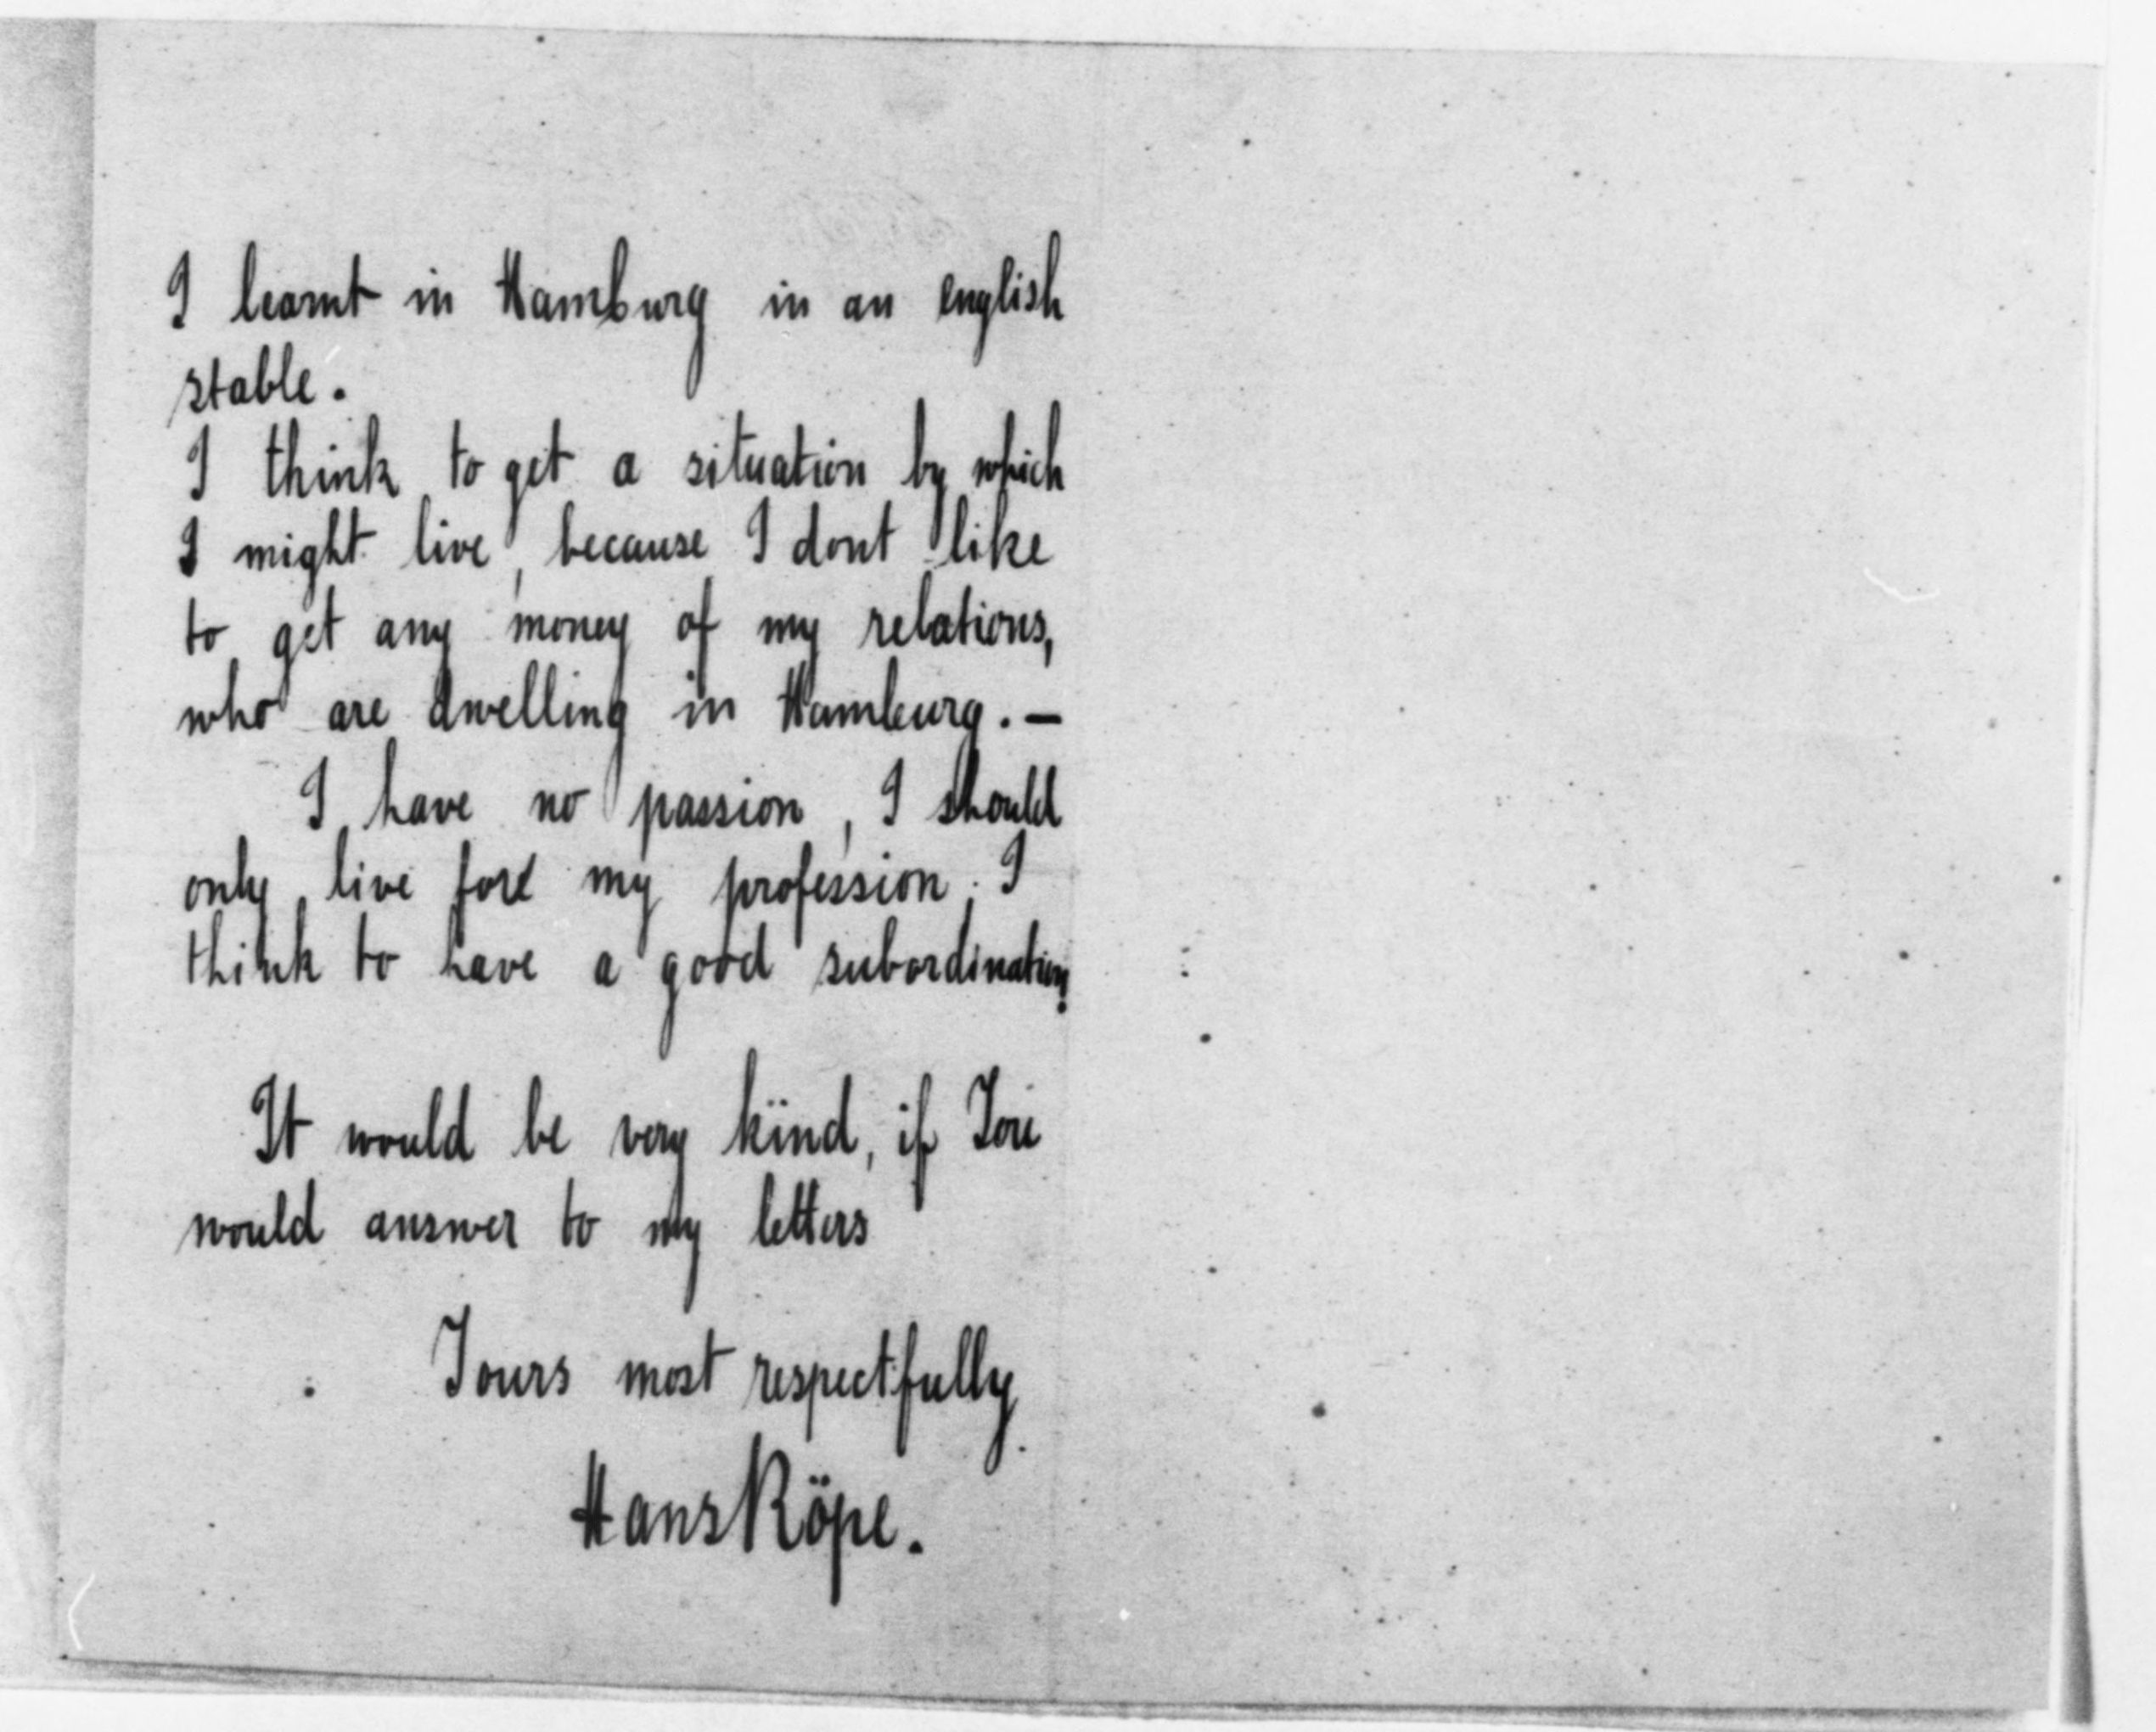 I learnt in Hamburg in an english
stable.
I think to get a situation by which
I might live, because I dont like
to get any money of my relations,
who are dwelling in Hamburg. —
I have no passion, I should
only live for my profession. I
think to have a good subordination.
It would be very kind, if You
would answer to my letters
Yours most respectfully
Hans Röpe.